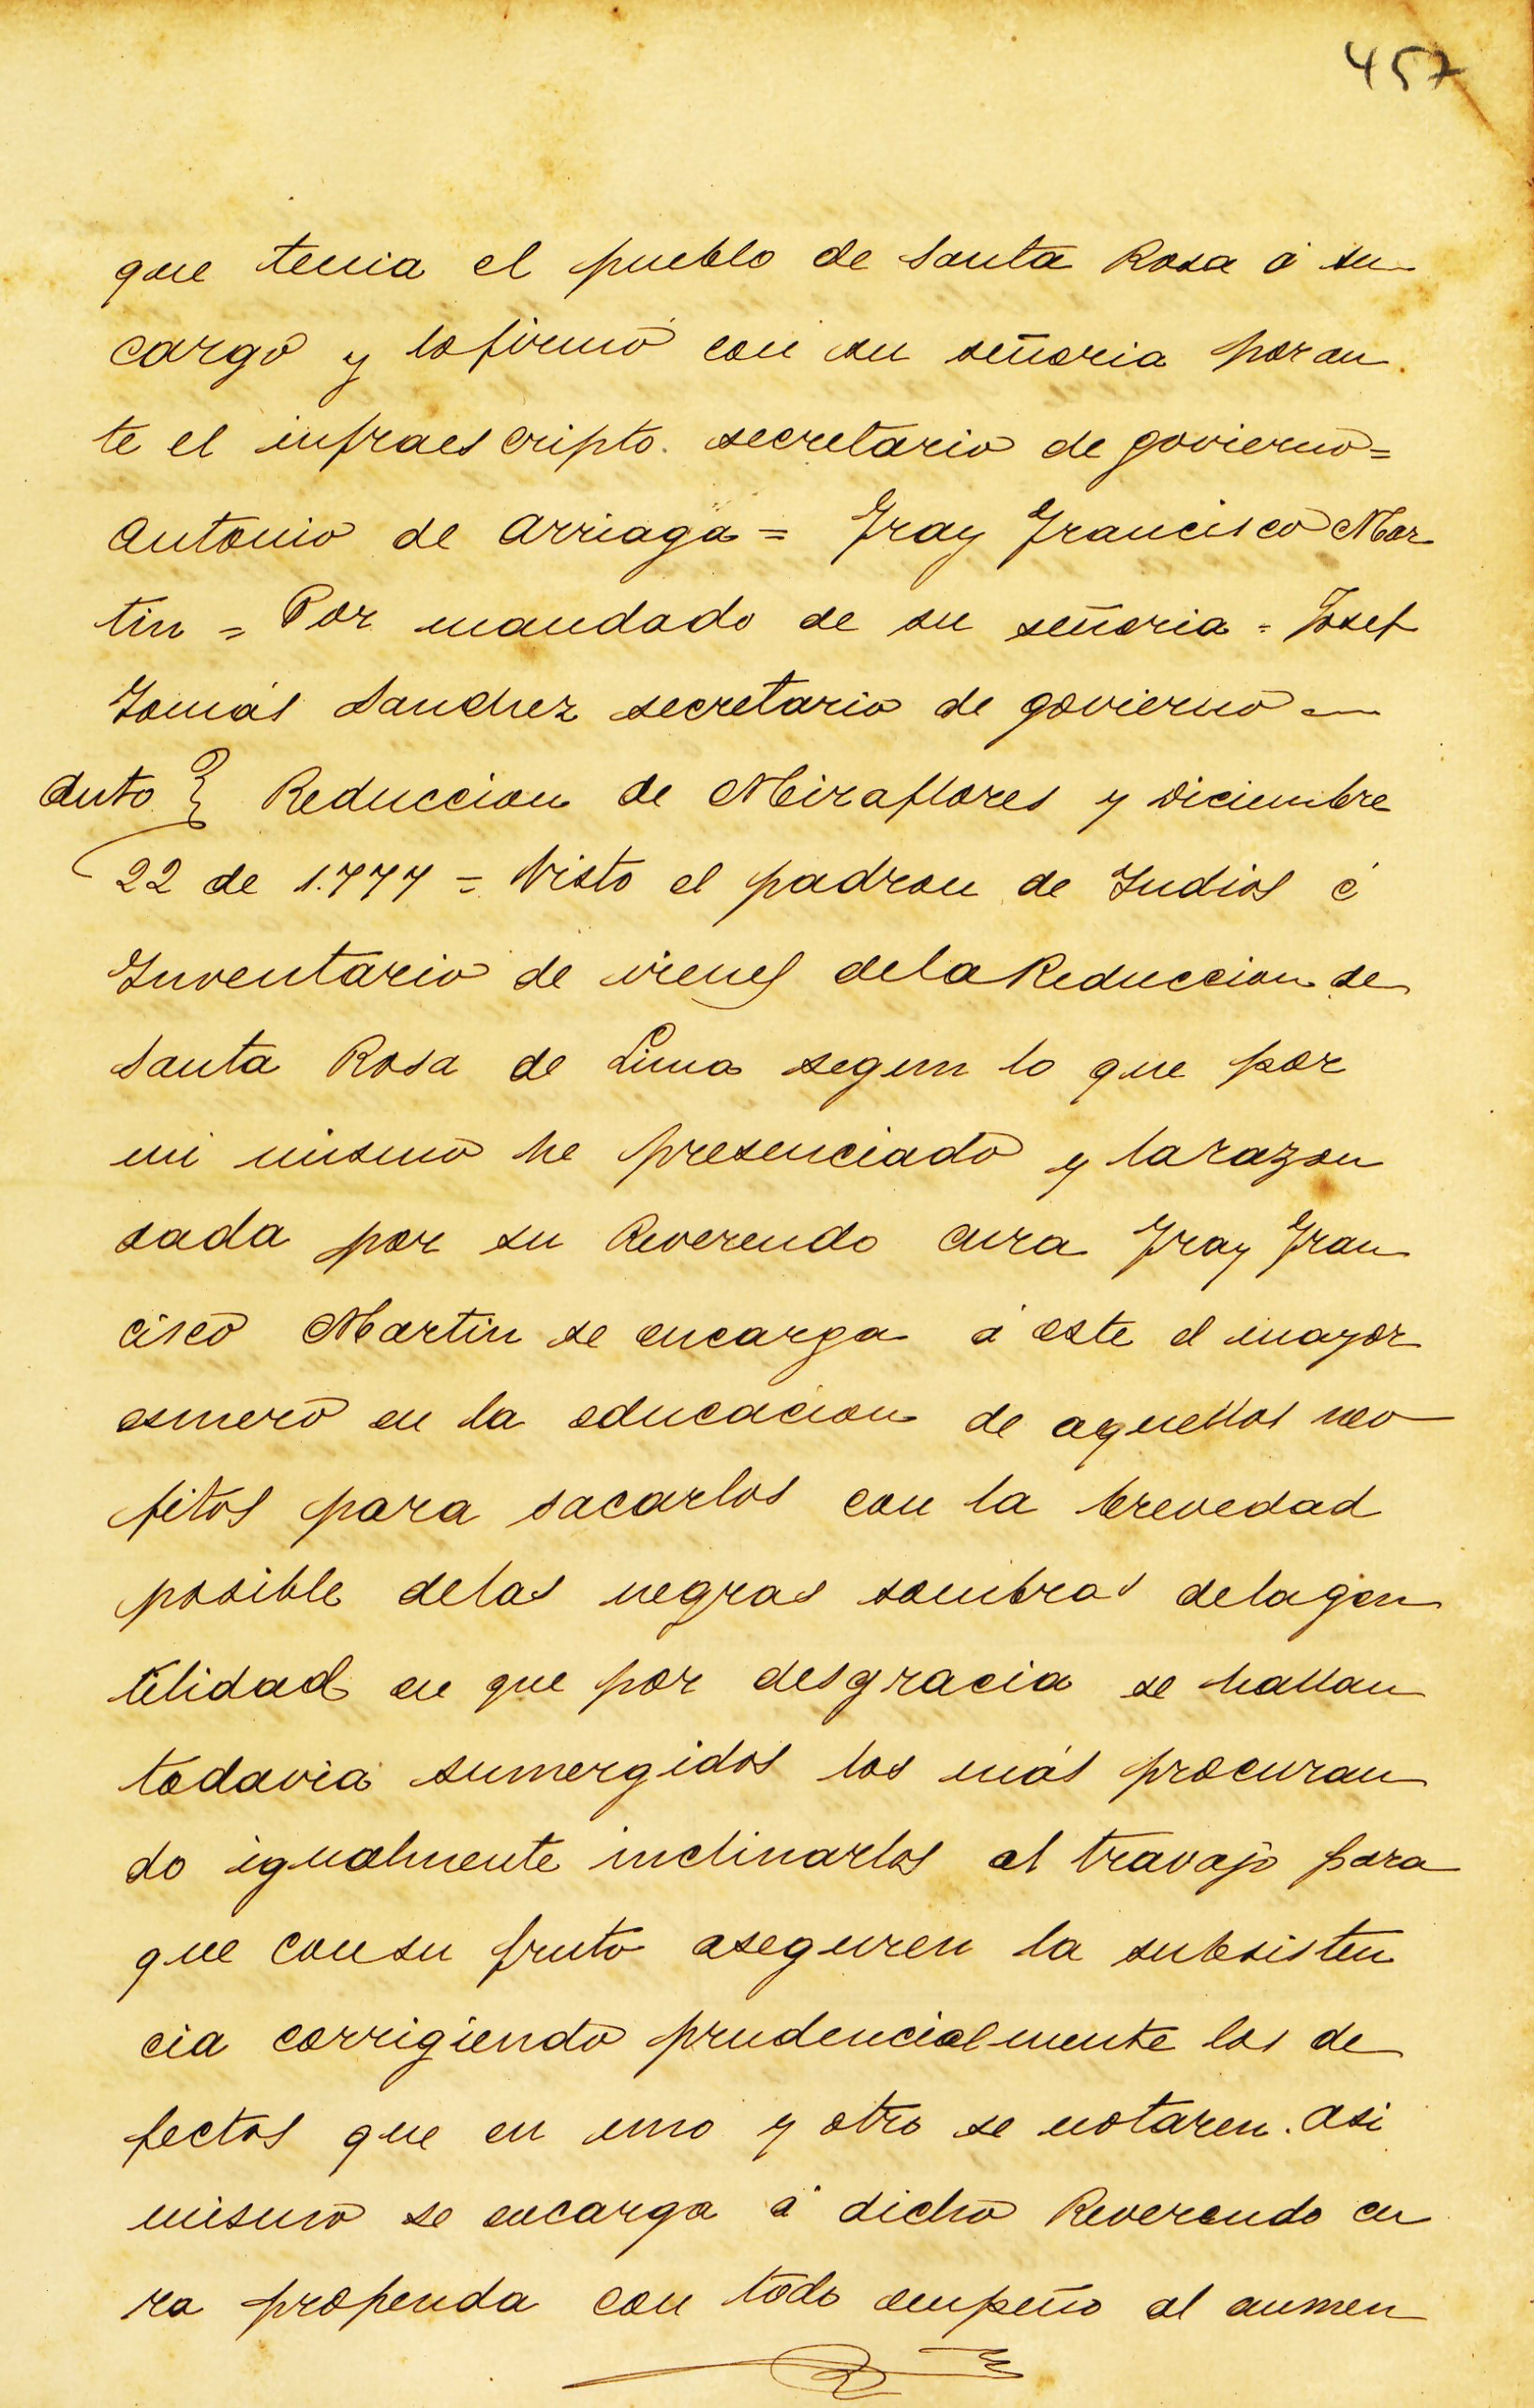 457
que tenia el pueblo de Santa Rosa á su
cargo y lo firmó con su señoria por an
te el infraescripto. secretario de govierno=
Antonio de Arriaga = Fray Francisco Mar
tin = Por mandado de su señoria = Josef
Tomás Sanchez secretario de govierno —
Auto } Reduccion de Miraflores y Diciembre
22 de 1.777 = Visto el padron de Indios é
Inventario de vienes dela Reduccion de
Santa Rosa de Lima segun lo que por
mi mismo he presenciado y larazon
dada por su Reverendo cura Fray Fran
cisco Martin se encarga á este el mayor
esmero en la educacion de aquellos neo
fitos para sacarlos con la brevedad
posible delas negras sombras delagen
tilidad en que por desgracia se hallan
todavia sumergidos los más procuran
do igualmente inclinarlos al travajo para
que consu fruto aseguren la subsisten
cia corrigiendo prudencialmente los de
fectos que en uno y otro se notaren. Asi
mismo se encarga á dicho Reverendo cu
ra propenda con todo empeño al aumen